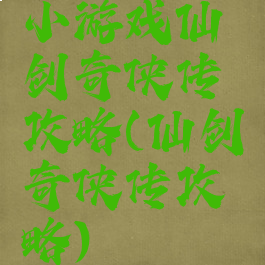 小游戏仙
剑奇侠传
攻略(仙剑
奇侠传攻
略)